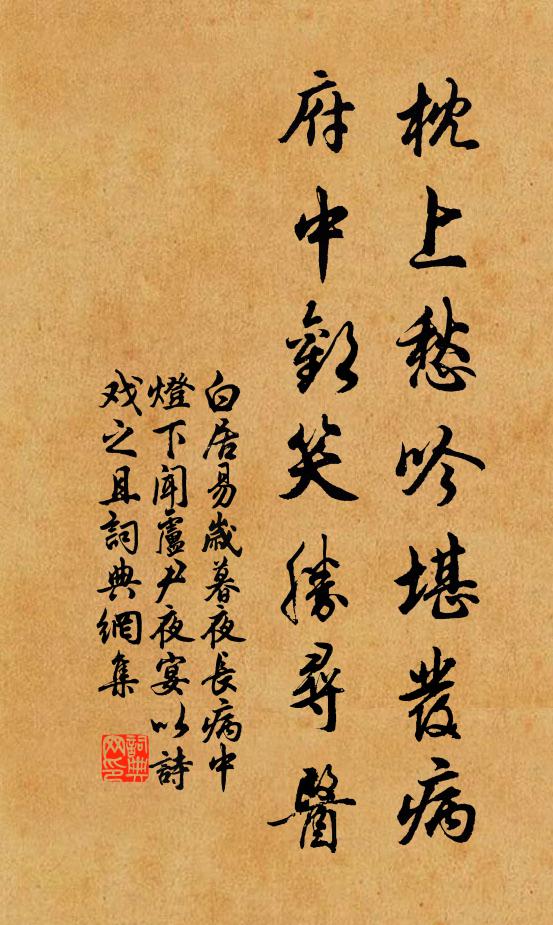 枕上愁吟堪發病
府中歡笑勝尋醫
白居易歲暮夜長病中
燈下聞盧尹夜宴以詩
戏之且詞典網集
詞典
网印